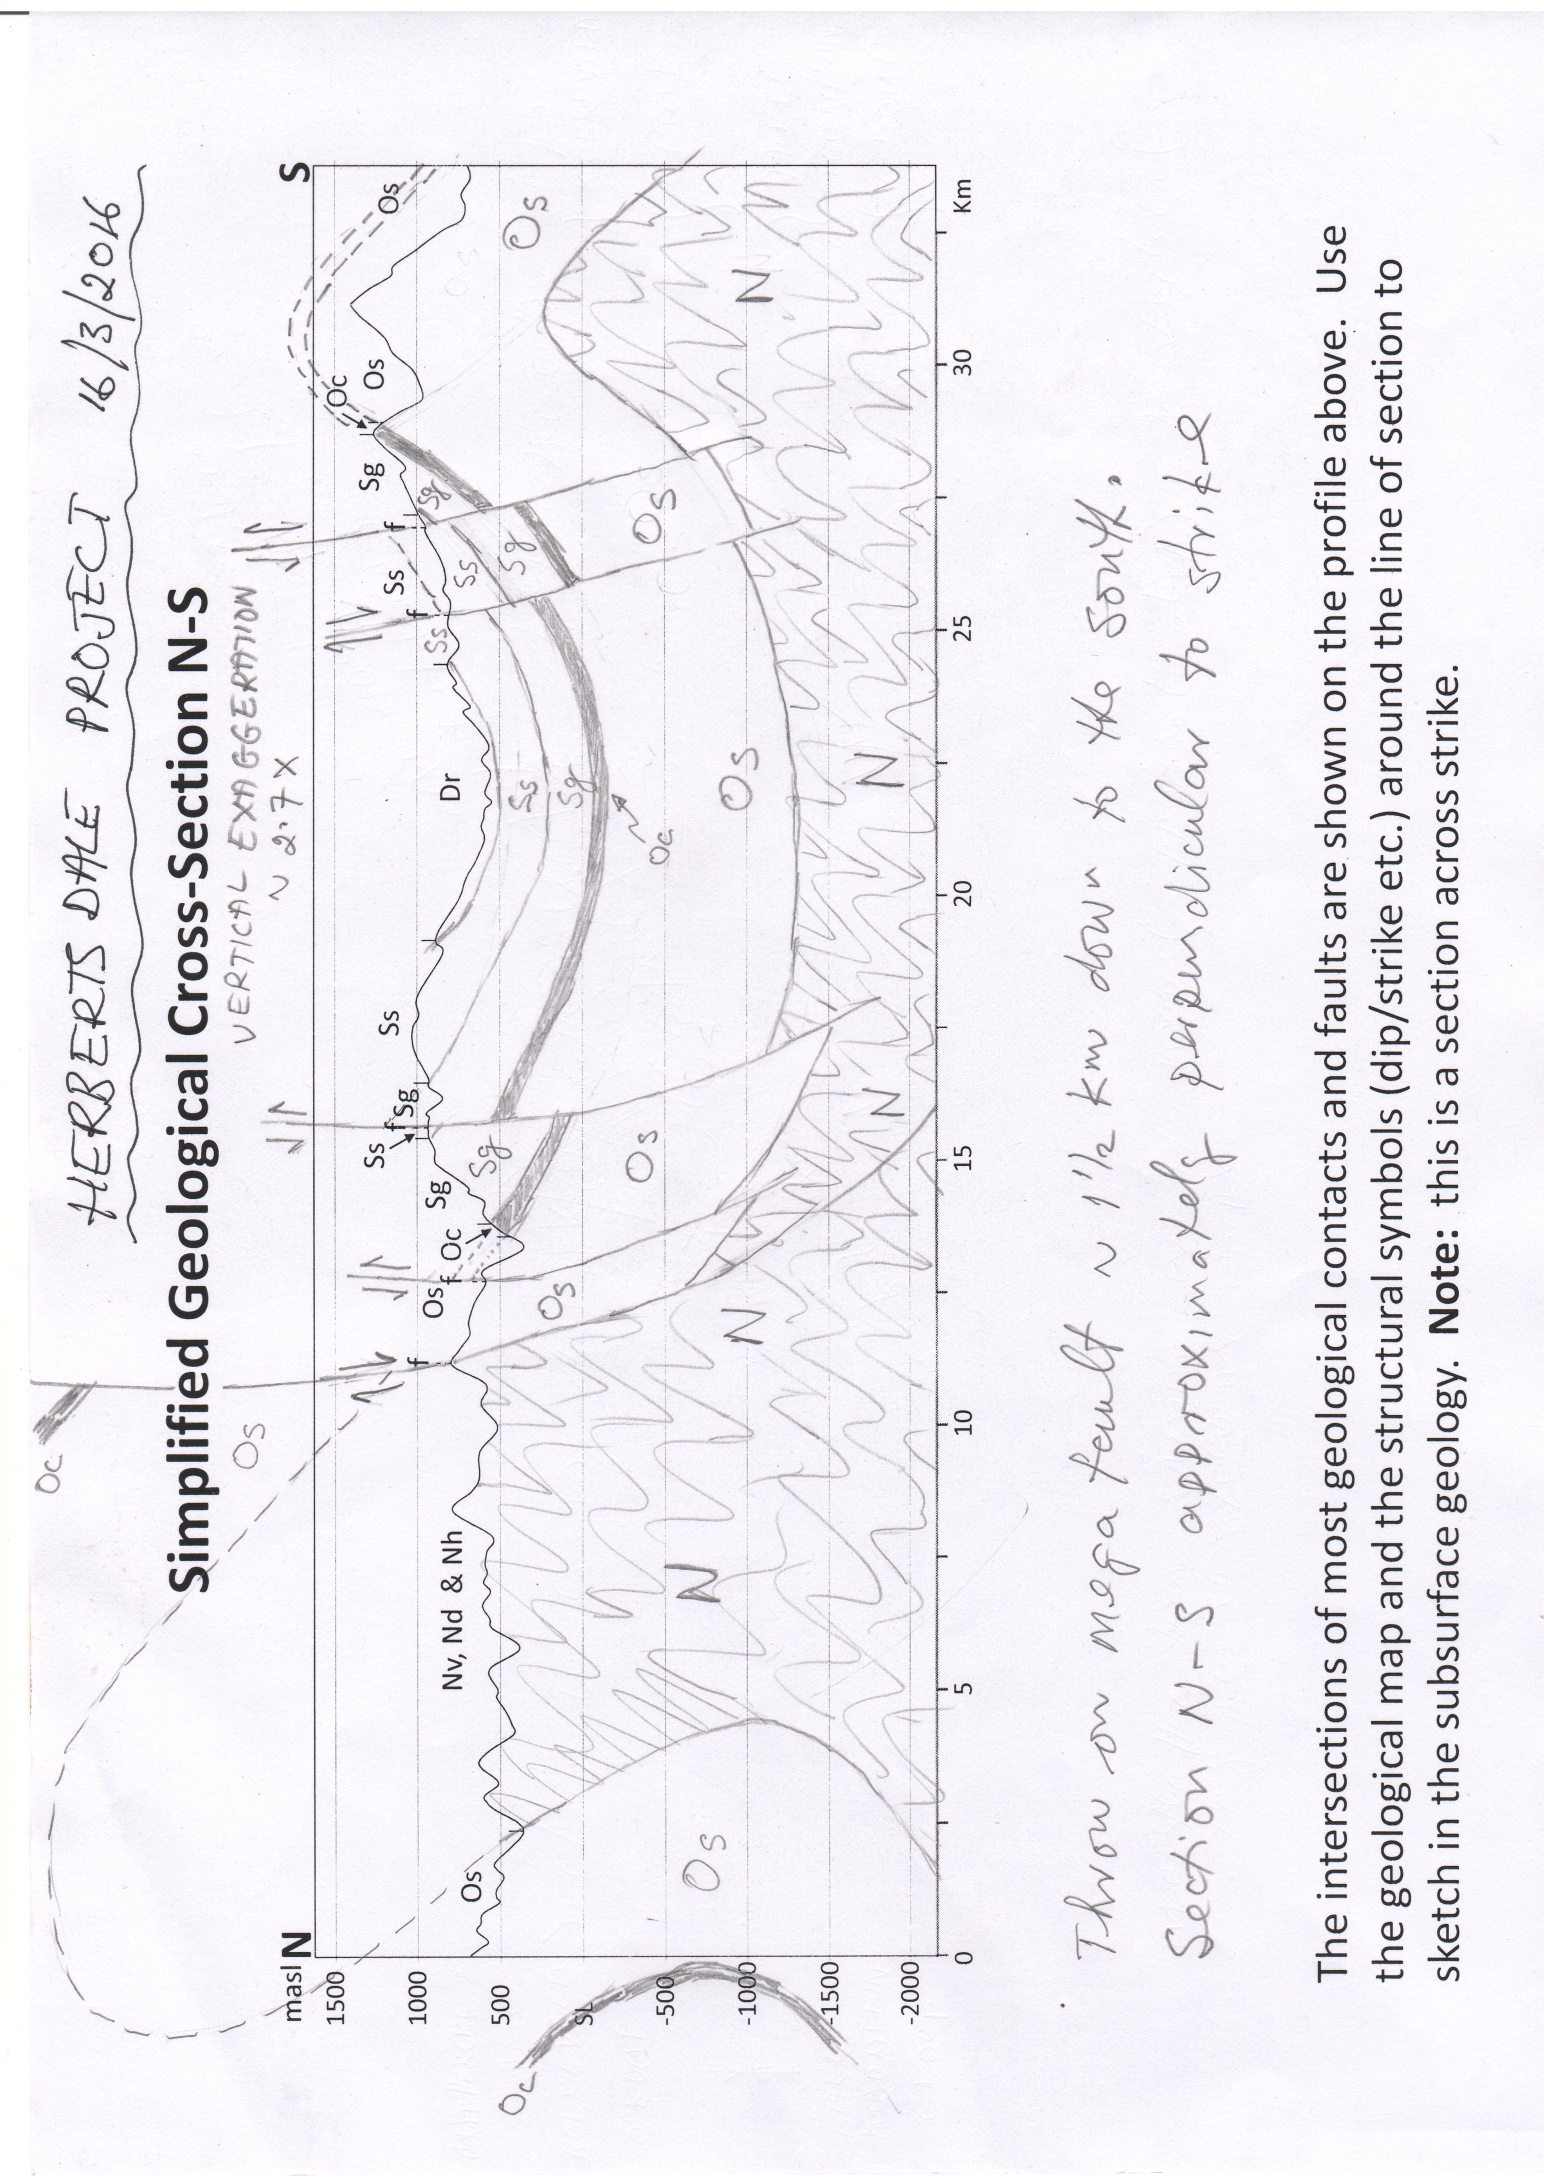 HERBERTSDALE PROJECT 16/3/2016
Simplified Geological Cross-Section N-S
VERTICAL EXAGGERATION
~ 2.7X
Oc
Os
N
S
masl
1500
1000
500
SL
-500
-1000
-1500
-2000
0
5
10
15
20
25
30
Km
Os
Nv, Nd & Nh
f
Os
f
Oc
Sg
Ss
f
Sg
Ss
Dr
Ss
f
Ss
f
Sg
Oc
Os
Os
Oc
Os
N
N
Os
Sg
Os
N
Ss
Sg
Oc
Os
N
Ss
Sg
Sg
Os
Os
N
Throw on mega fault ~ 1½ km down to the south.
Section N-S approximately perpendicular to strike
The intersections of most geological contacts and faults are shown on the profile above. Use
the geological map and the structural symbols (dip/strike etc.) around the line of section to
sketch in the subsurface geology. Note: this is a section across strike.